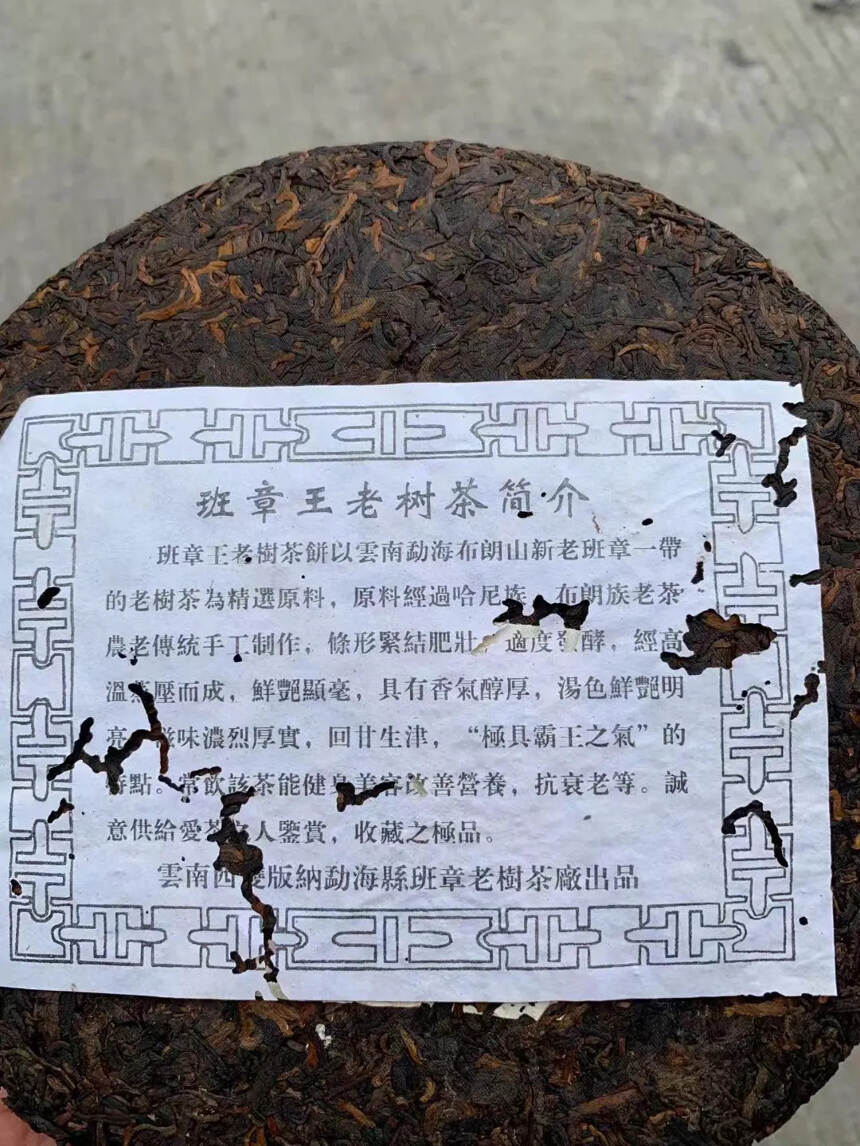 班章王老树茶简介
班章王老樹茶餅以雲南勐海布朗山新老班章一帶
的老樹茶為精選原料，原料經過哈尼族、布朗族老茶
農老傳統手工制作，條形緊結肥壯，適度發酵，經高
溫蒸壓而成，鮮艷顯毫，具有香氣醇厚，湯色鮮艷明
亮，滋味濃烈厚實，回甘生津，“極具霸王之氣”的
特點。常飲該茶能健身美容改善營養，抗衰老等。誠
意供給愛茶 人鑒賞，收藏之極品。
雲南西雙版納勐海縣班章老樹茶廠出品